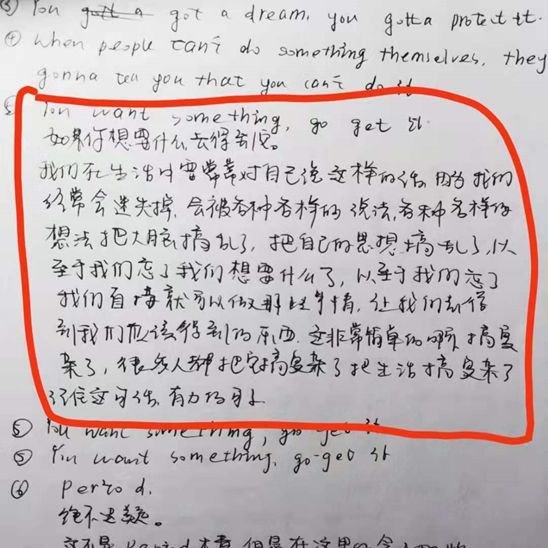 ③ You got a dream, you gotta protect it.
④ When people can't do something themselves, they
gonna tell you that you can't do it
You want something, go get it.
如果你想要什么去得到它。
我们在生活中要常常对自己说这样的话,因为我们
经常会迷失掉,会被各种各样的说法,各种各样的
想法把大脑搞乱了,把自己的思想搞乱了,以
至于我们忘了我们想要什么了,以至于我们忘了
我们直接就可以做那些事情,让我们去得
到我们应该得到的东西,这非常简单的 搞复
杂了,很多人都把它搞复杂了把生活搞复杂了
记住这句话,有力的
⑤ You want something, go get it
⑤ You want something, go get it
⑥ Period.
绝不迟疑。
这不是Period本意,但是在这里